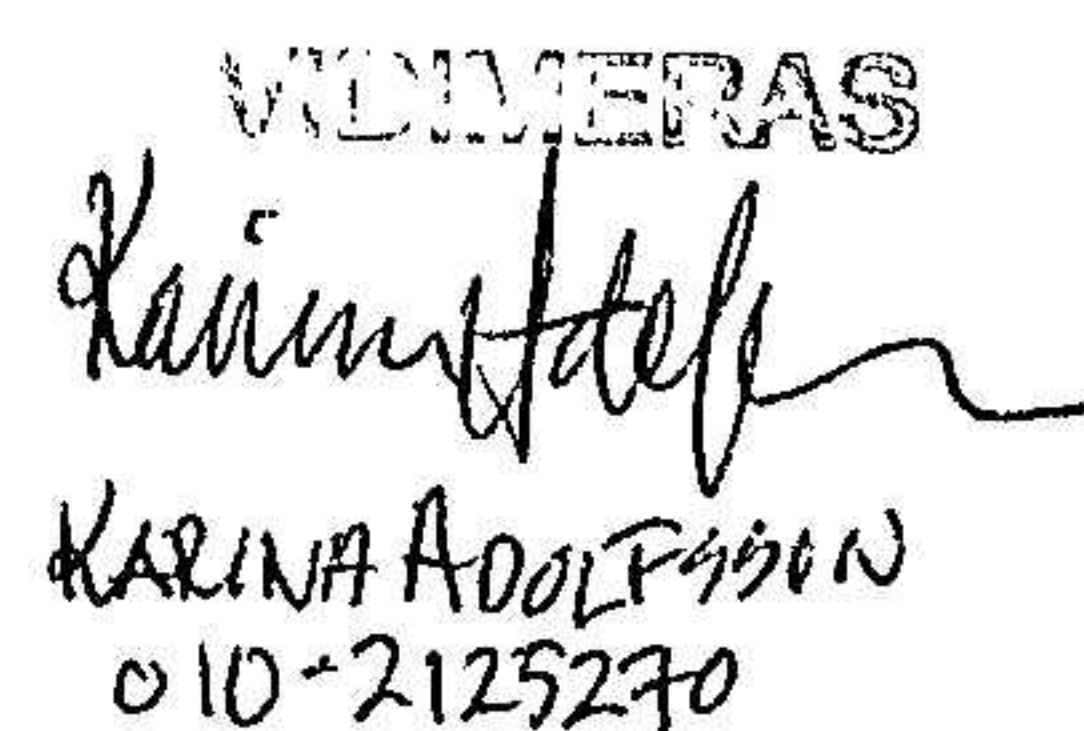 VIDIMERAS
Karina Adolfsson
KARINA ADOLFSSON
010-2125270